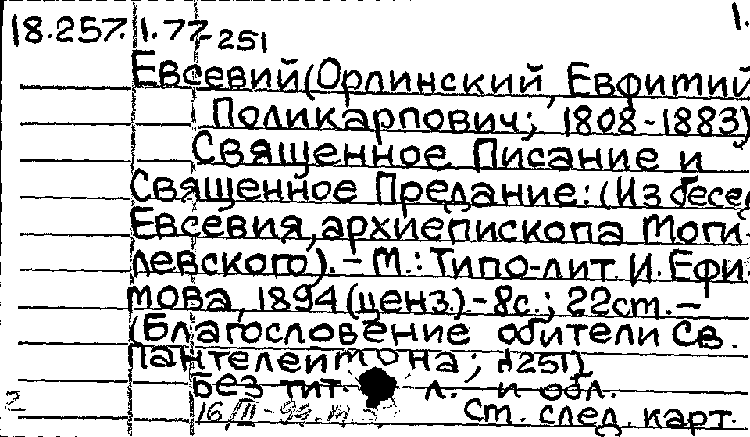 18.257.1.77-251 1.
Евсевий (Орлинский, Евфитий
Поликарпович; 1808-1883)
Священное Писание и
Священное Предание: (Из бесед
Евсевия, архиепископа Моги-
левского). - М.: Типо-лит И. Ефи-
мова, 1894 (ценз.) - 8с.; 22см. -
(Благословение обители Св.
Пантелеймона; №251)
Без тит. л. и обл.
2
Ст. след. карт.